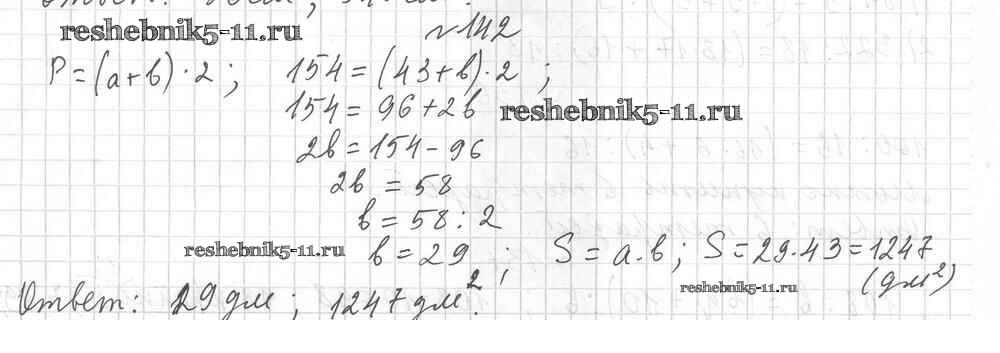 reshebnik5-11.ru
№142
P=(a+b)·2; 154=(43+b)·2;
154=96+2b
reshebnik5-11.ru
2b=154-96
2b=58
b=58:2
reshebnik5-11.ru
b=29; S=a·b; S=29·43=1247
(дм²)
reshebnik5-11.ru
Ответ: 29 дм; 1247 дм².